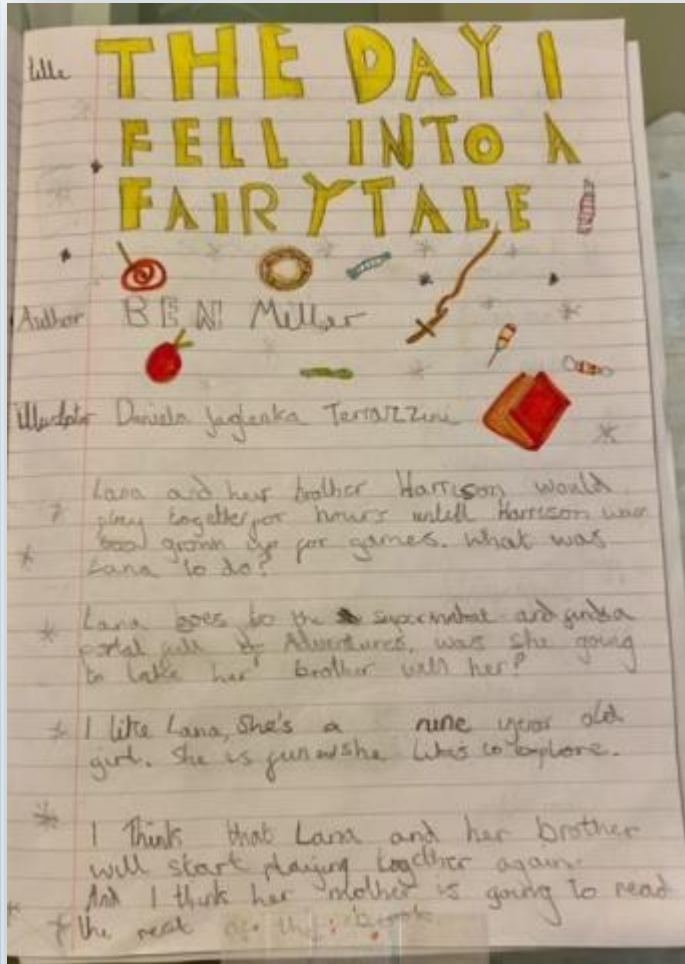 title THE DAY I
FELL INTO A
FAIRYTALE
Author BEN Miller
Daniela Terrazzini
Lana and her brother Harrison would
play together for hours untill Harrison was
too grown up for games. What was
Lana to do?
Lana goes to the and finds a
portal full of Adventures, was she going
to take her brother with her?
I like Lana, She's a nine year old
girl. She is fun she likes to explore.
I Think that Lana and her brother
will start playing together again.
And I think her mother is going to read
the rest of this book.